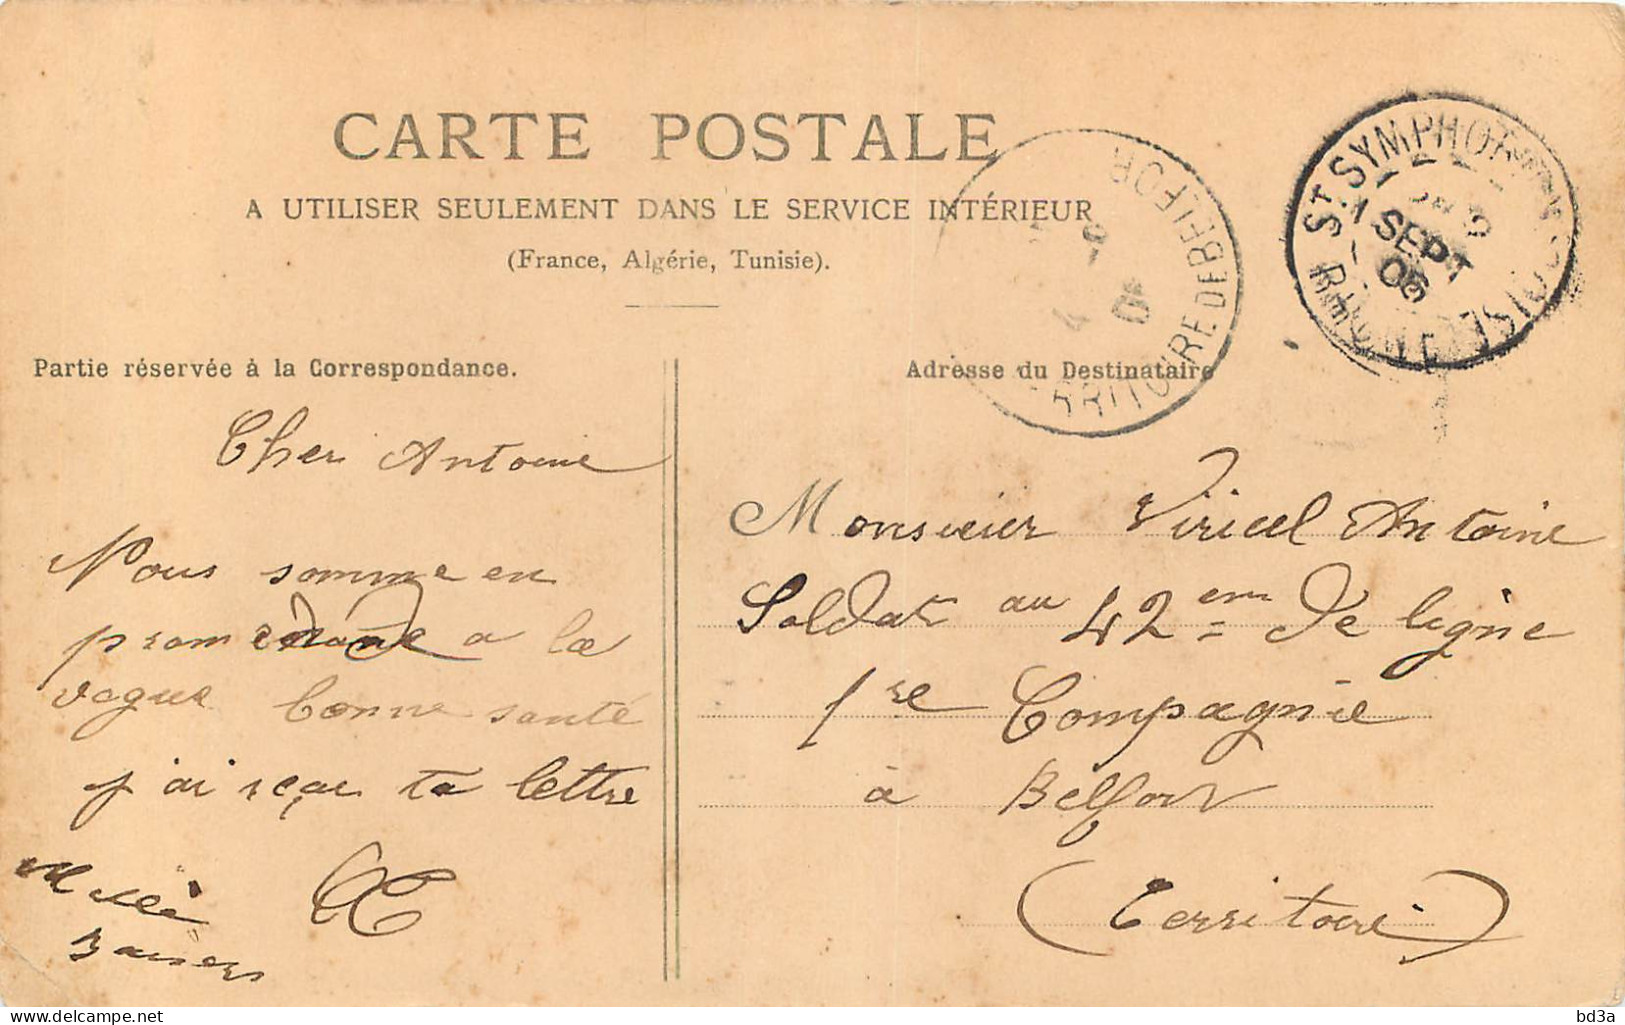 CARTE POSTALE
A UTILISER SEULEMENT DANS LE SERVICE INTÉRIEUR
(France, Algérie, Tunisie).
RRITOIRE DE BELFOR
ST SYMPHOR
SEPT
05
RHONE
Partie réservée à la Correspondance.
Adresse du Destinataire
Cher Antoine
Nous somme en
promenade a la
vogue bonne santé
j'ai reçu ta lettre
Mille
Baisers
Monsieur Viricel Antoine
Soldat au 42 em de ligne
1re Compagnie
à Belfort
(Territoire)
delcampe.net
bd3a